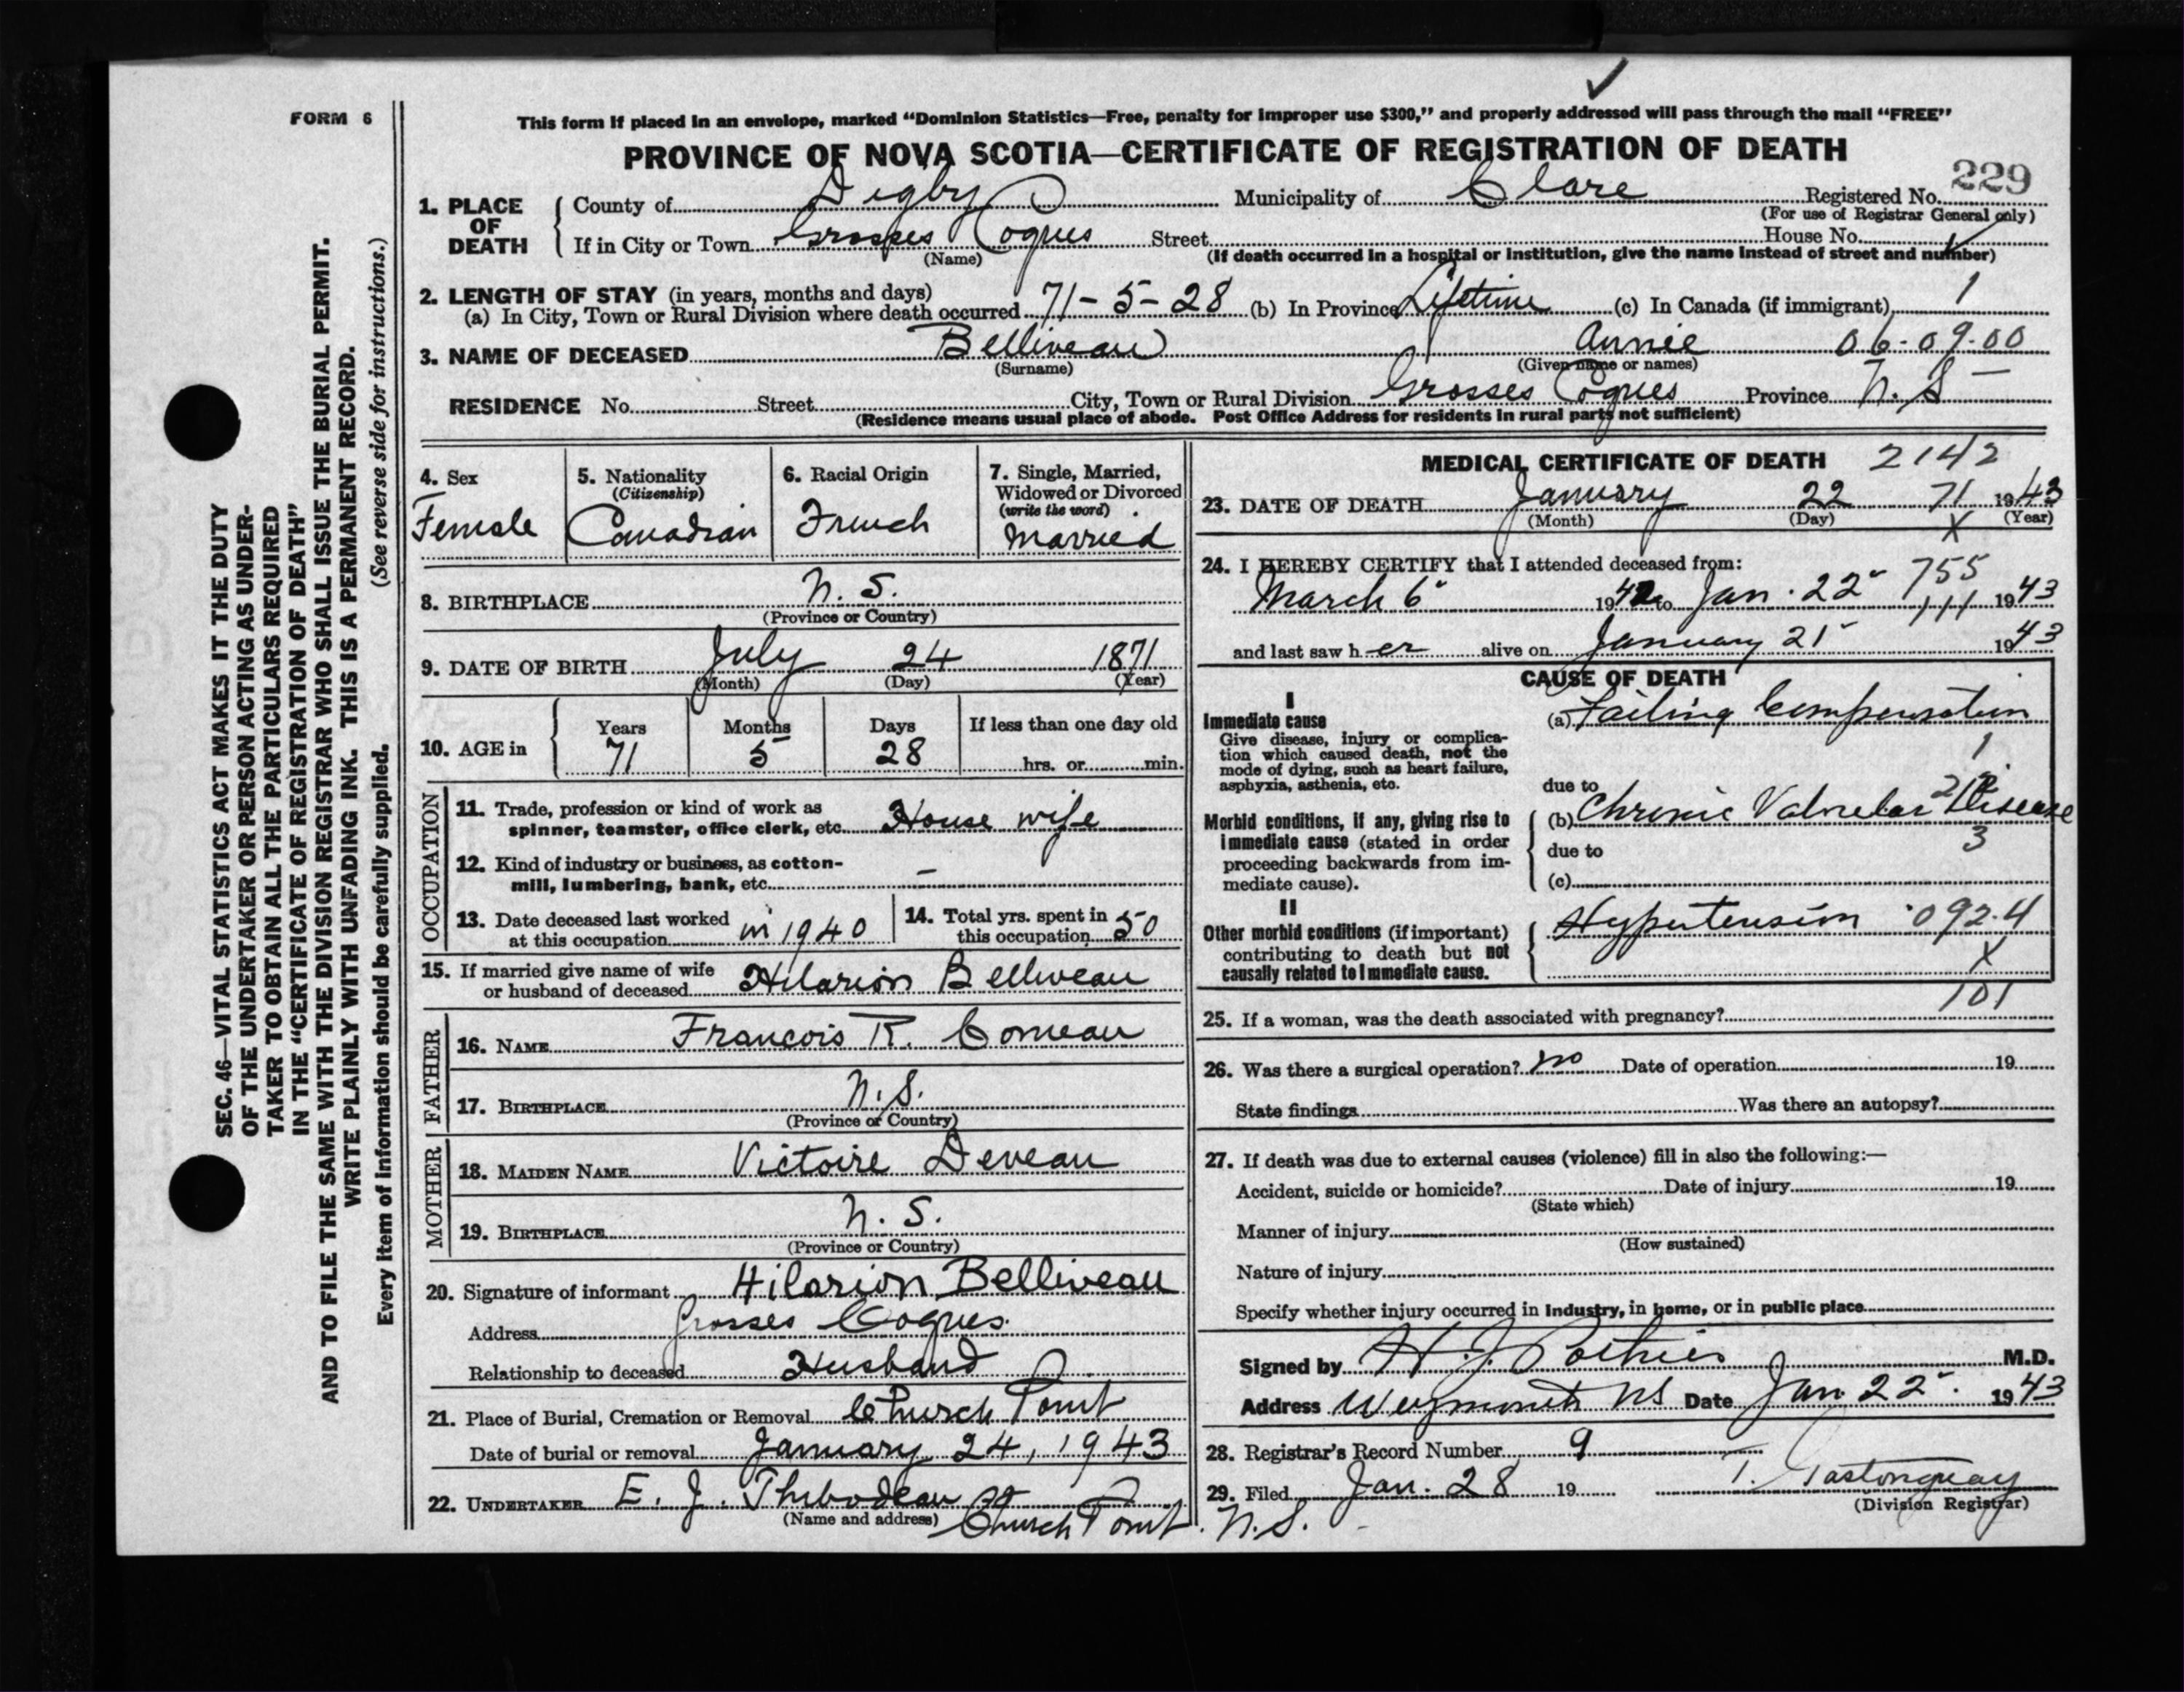 FORM 6
This form if placed in an envelope, marked “Dominion Statistics—Free, penalty for improper use $300,” and properly addressed will pass through the mail “FREE”
PROVINCE OF NOVA SCOTIA—CERTIFICATE OF REGISTRATION OF DEATH
229
1. PLACE OF DEATH
County of Digby Municipality of Clare Registered No.
(For use of Registrar General only)
If in City or Town Grosses Coques Street House No.
(Name) (If death occurred in a hospital or institution, give the name instead of street and number)
2. LENGTH OF STAY (in years, months and days)
(a) In City, Town or Rural Division where death occurred 71-5-28 (b) In Province Lifetime (c) In Canada (if immigrant) 1
3. NAME OF DECEASED Belliveau Annie 06-09-00
(Surname) (Given name or names)
RESIDENCE No. Street City, Town or Rural Division Grosses Coques Province N.S
(Residence means usual place of abode. Post Office Address for residents in rural parts not sufficient)
4. Sex
Female
5. Nationality
(Citizenship)
Canadian
6. Racial Origin
French
7. Single, Married,
Widowed or Divorced
(write the word)
Married
8. BIRTHPLACE N. S.
(Province or Country)
9. DATE OF BIRTH July 24 1871
(Month) (Day) (Year)
10. AGE in
Years Months Days If less than one day old
71 5 28 hrs. or min.
OCCUPATION
11. Trade, profession or kind of work as
spinner, teamster, office clerk, etc. House wife
12. Kind of industry or business, as cotton-
mill, lumbering, bank, etc. —
13. Date deceased last worked
at this occupation in 1940
14. Total yrs. spent in
this occupation 50
15. If married give name of wife
or husband of deceased Hilarion Belliveau
FATHER
16. NAME Francois R. Comeau
17. BIRTHPLACE N.S.
(Province or Country)
MOTHER
18. MAIDEN NAME Victoire Deveau
19. BIRTHPLACE N. S.
(Province or Country)
20. Signature of informant Hilarion Belliveau
Address Grosses Coques
Relationship to deceased Husband
21. Place of Burial, Cremation or Removal Church Point
Date of burial or removal January 24, 1943
22. UNDERTAKER E. J. Thibodeau
(Name and address) Church Point. N.S.
MEDICAL CERTIFICATE OF DEATH 2142
23. DATE OF DEATH January 22 71 1943
(Month) (Day) X (Year)
24. I HEREBY CERTIFY that I attended deceased from:
755
March 6" 1942 to Jan. 22" 1943
111
and last saw her alive on January 21" 1943
CAUSE OF DEATH
I
Immediate cause
Give disease, injury or complica-
tion which caused death, not the
mode of dying, such as heart failure,
asphyxia, asthenia, etc.
(a) Failing Compensation
1
due to
Morbid conditions, if any, giving rise to
immediate cause (stated in order
proceeding backwards from im-
mediate cause).
(b) Chronic Valvular Disease
3
due to
(c)
II
Other morbid conditions (if important)
contributing to death but not
causally related to immediate cause.
Hypertension 092.4
X
101
25. If a woman, was the death associated with pregnancy?
26. Was there a surgical operation? no Date of operation 19
State findings Was there an autopsy?
27. If death was due to external causes (violence) fill in also the following:—
Accident, suicide or homicide? Date of injury 19
(State which)
Manner of injury
(How sustained)
Nature of injury
Specify whether injury occurred in industry, in home, or in public place
Signed by H. J. Pothier M.D.
Address Weymouth NS Date Jan 22". 1943
28. Registrar's Record Number 9
29. Filed Jan. 28 19 T. Gastonguay
(Division Registrar)
SEC. 46—VITAL STATISTICS ACT MAKES IT THE DUTY
OF THE UNDERTAKER OR PERSON ACTING AS UNDER-
TAKER TO OBTAIN ALL THE PARTICULARS REQUIRED
IN THE “CERTIFICATE OF REGISTRATION OF DEATH”
AND TO FILE THE SAME WITH THE DIVISION REGISTRAR WHO SHALL ISSUE THE BURIAL PERMIT.
WRITE PLAINLY WITH UNFADING INK. THIS IS A PERMANENT RECORD.
(See reverse side for instructions.)
Every item of information should be carefully supplied.